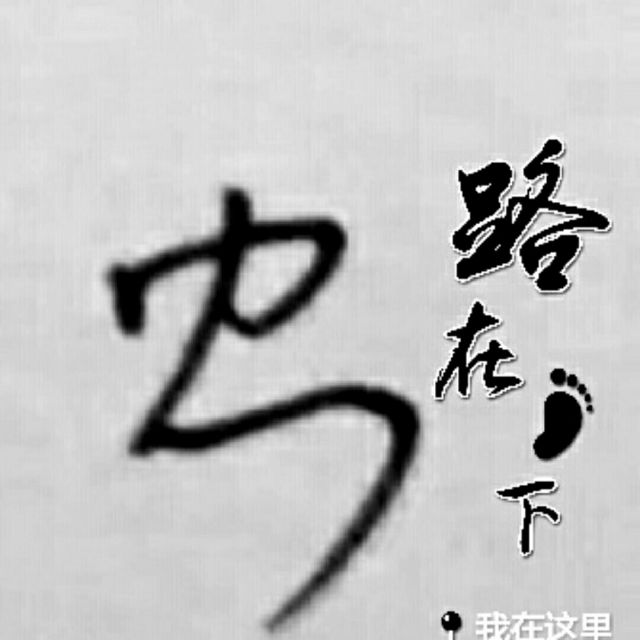 路
在
下
我在这里